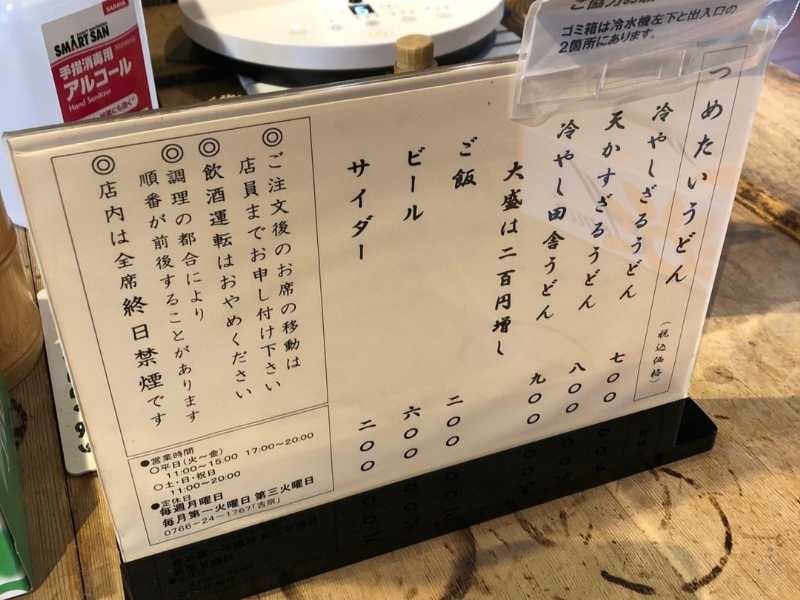 SARAYA
SMART SAN
手指消毒用
アルコール
Hand Sanitizer
ゴミ箱は冷水機左下と出入口の
2箇所にあります。
つめたいうどん (税込価格)
冷やしざるうどん 七〇〇
天かすざるうどん 八〇〇
冷やし田舎うどん 九〇〇
大盛は二百円増し
ご飯 二〇〇
ビール 六〇〇
サイダー 二〇〇
◎ご注文後のお席の移動は
店員までお申し付け下さい
◎飲酒運転はおやめください
◎調理の都合により
順番が前後することがあります
◎店内は全席終日禁煙です
●営業時間
○平日(火～金)
11:00～15:00 17:00～20:00
○土・日・祝日
11:00～20:00
●定休日
毎週月曜日
毎月第一火曜日 第三火曜日
0766-24-1767「吉宗」